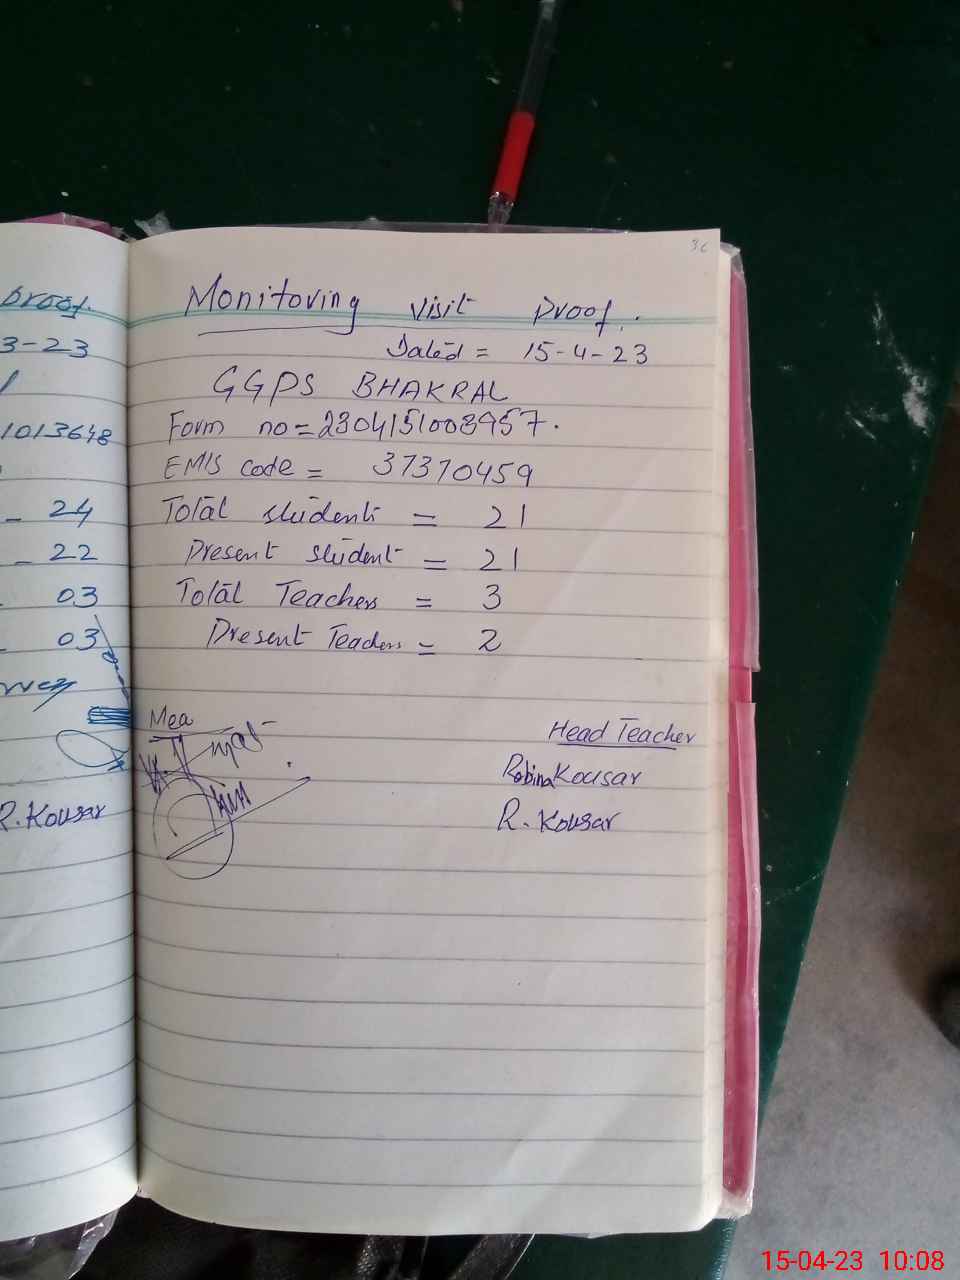 proof.
3-23
1013648
- 24
- 22
03
03
R. Kousar
36
Monitoring visit proof.
Dated = 15-4-23
GGPS BHAKRAL
Form no = 2304151008957.
EMIS code = 37370459
Total students = 21
Present student = 21
Total Teachers = 3
Present Teachers = 2
Mea
Head Teacher
Robina Kousar
R. Kousar
15-04-23 10:08